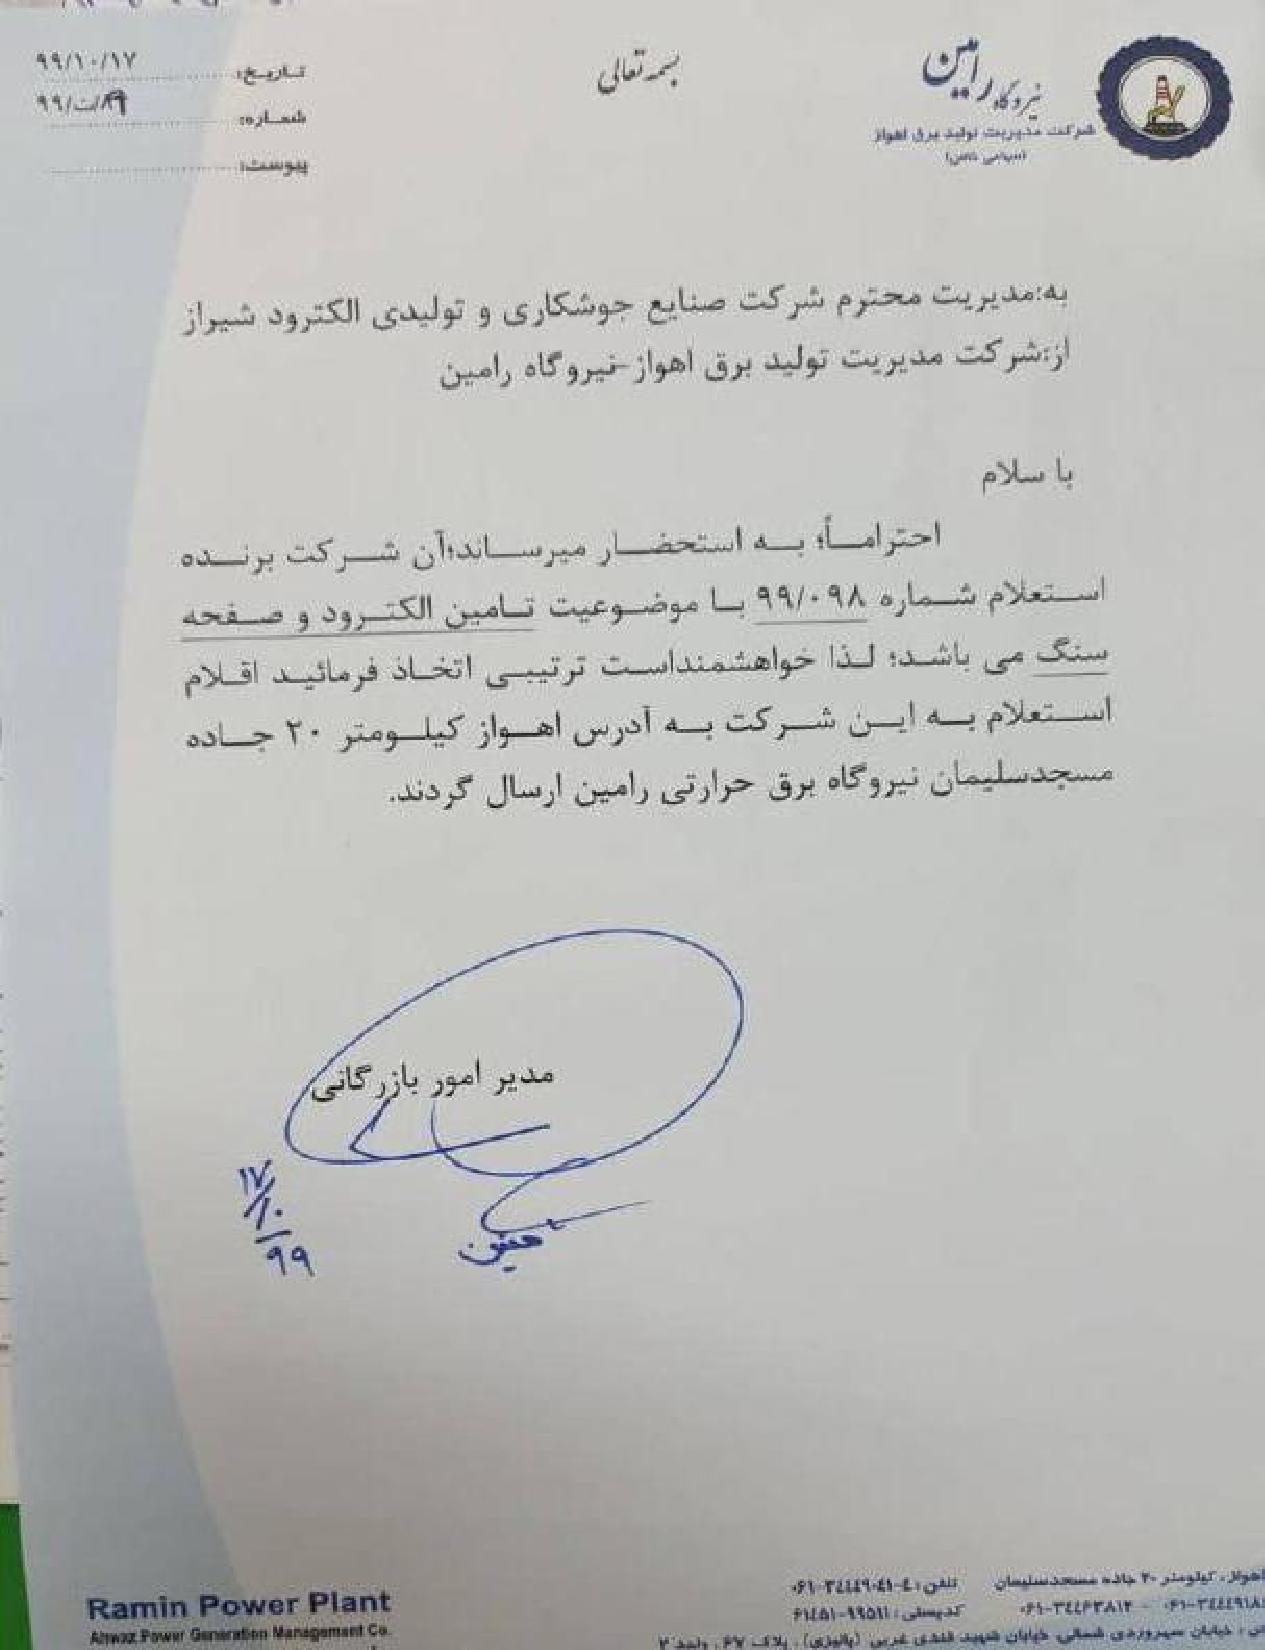 بسمه تعالی
نیروگاه رامین
شرکت مدیریت تولید برق اهواز
(سهامی خاص)
تاریخ: ۹۹/۱۰/۱۷
شماره: ۹۹/ت/۸۹
پیوست:
به:مدیریت محترم شرکت صنایع جوشکاری و تولیدی الکترود شیراز
از:شرکت مدیریت تولید برق اهواز-نیروگاه رامین
با سلام
احتراماً؛ به استحضار میرساند؛آن شرکت برنده
استعلام شماره ۹۹/۰۹۸ با موضوعیت تامین الکترود و صفحه
سنگ می باشد؛ لذا خواهشمنداست ترتیبی اتخاذ فرمائید اقلام
استعلام به این شرکت به آدرس اهواز کیلومتر ۲۰ جاده
مسجدسلیمان نیروگاه برق حرارتی رامین ارسال گردند.
مدیر امور بازرگانی
۱۷/۱۰/۹۹
اهواز، کیلومتر ۲۰ جاده مسجدسلیمان تلفن:
کدپستی:
خیابان سهروردی شمالی، خیابان شهید قندی غربی (پالیزی)، پلاک ۶۷، واحد ۲
Ramin Power Plant
Ahwaz Power Generation Management Co.